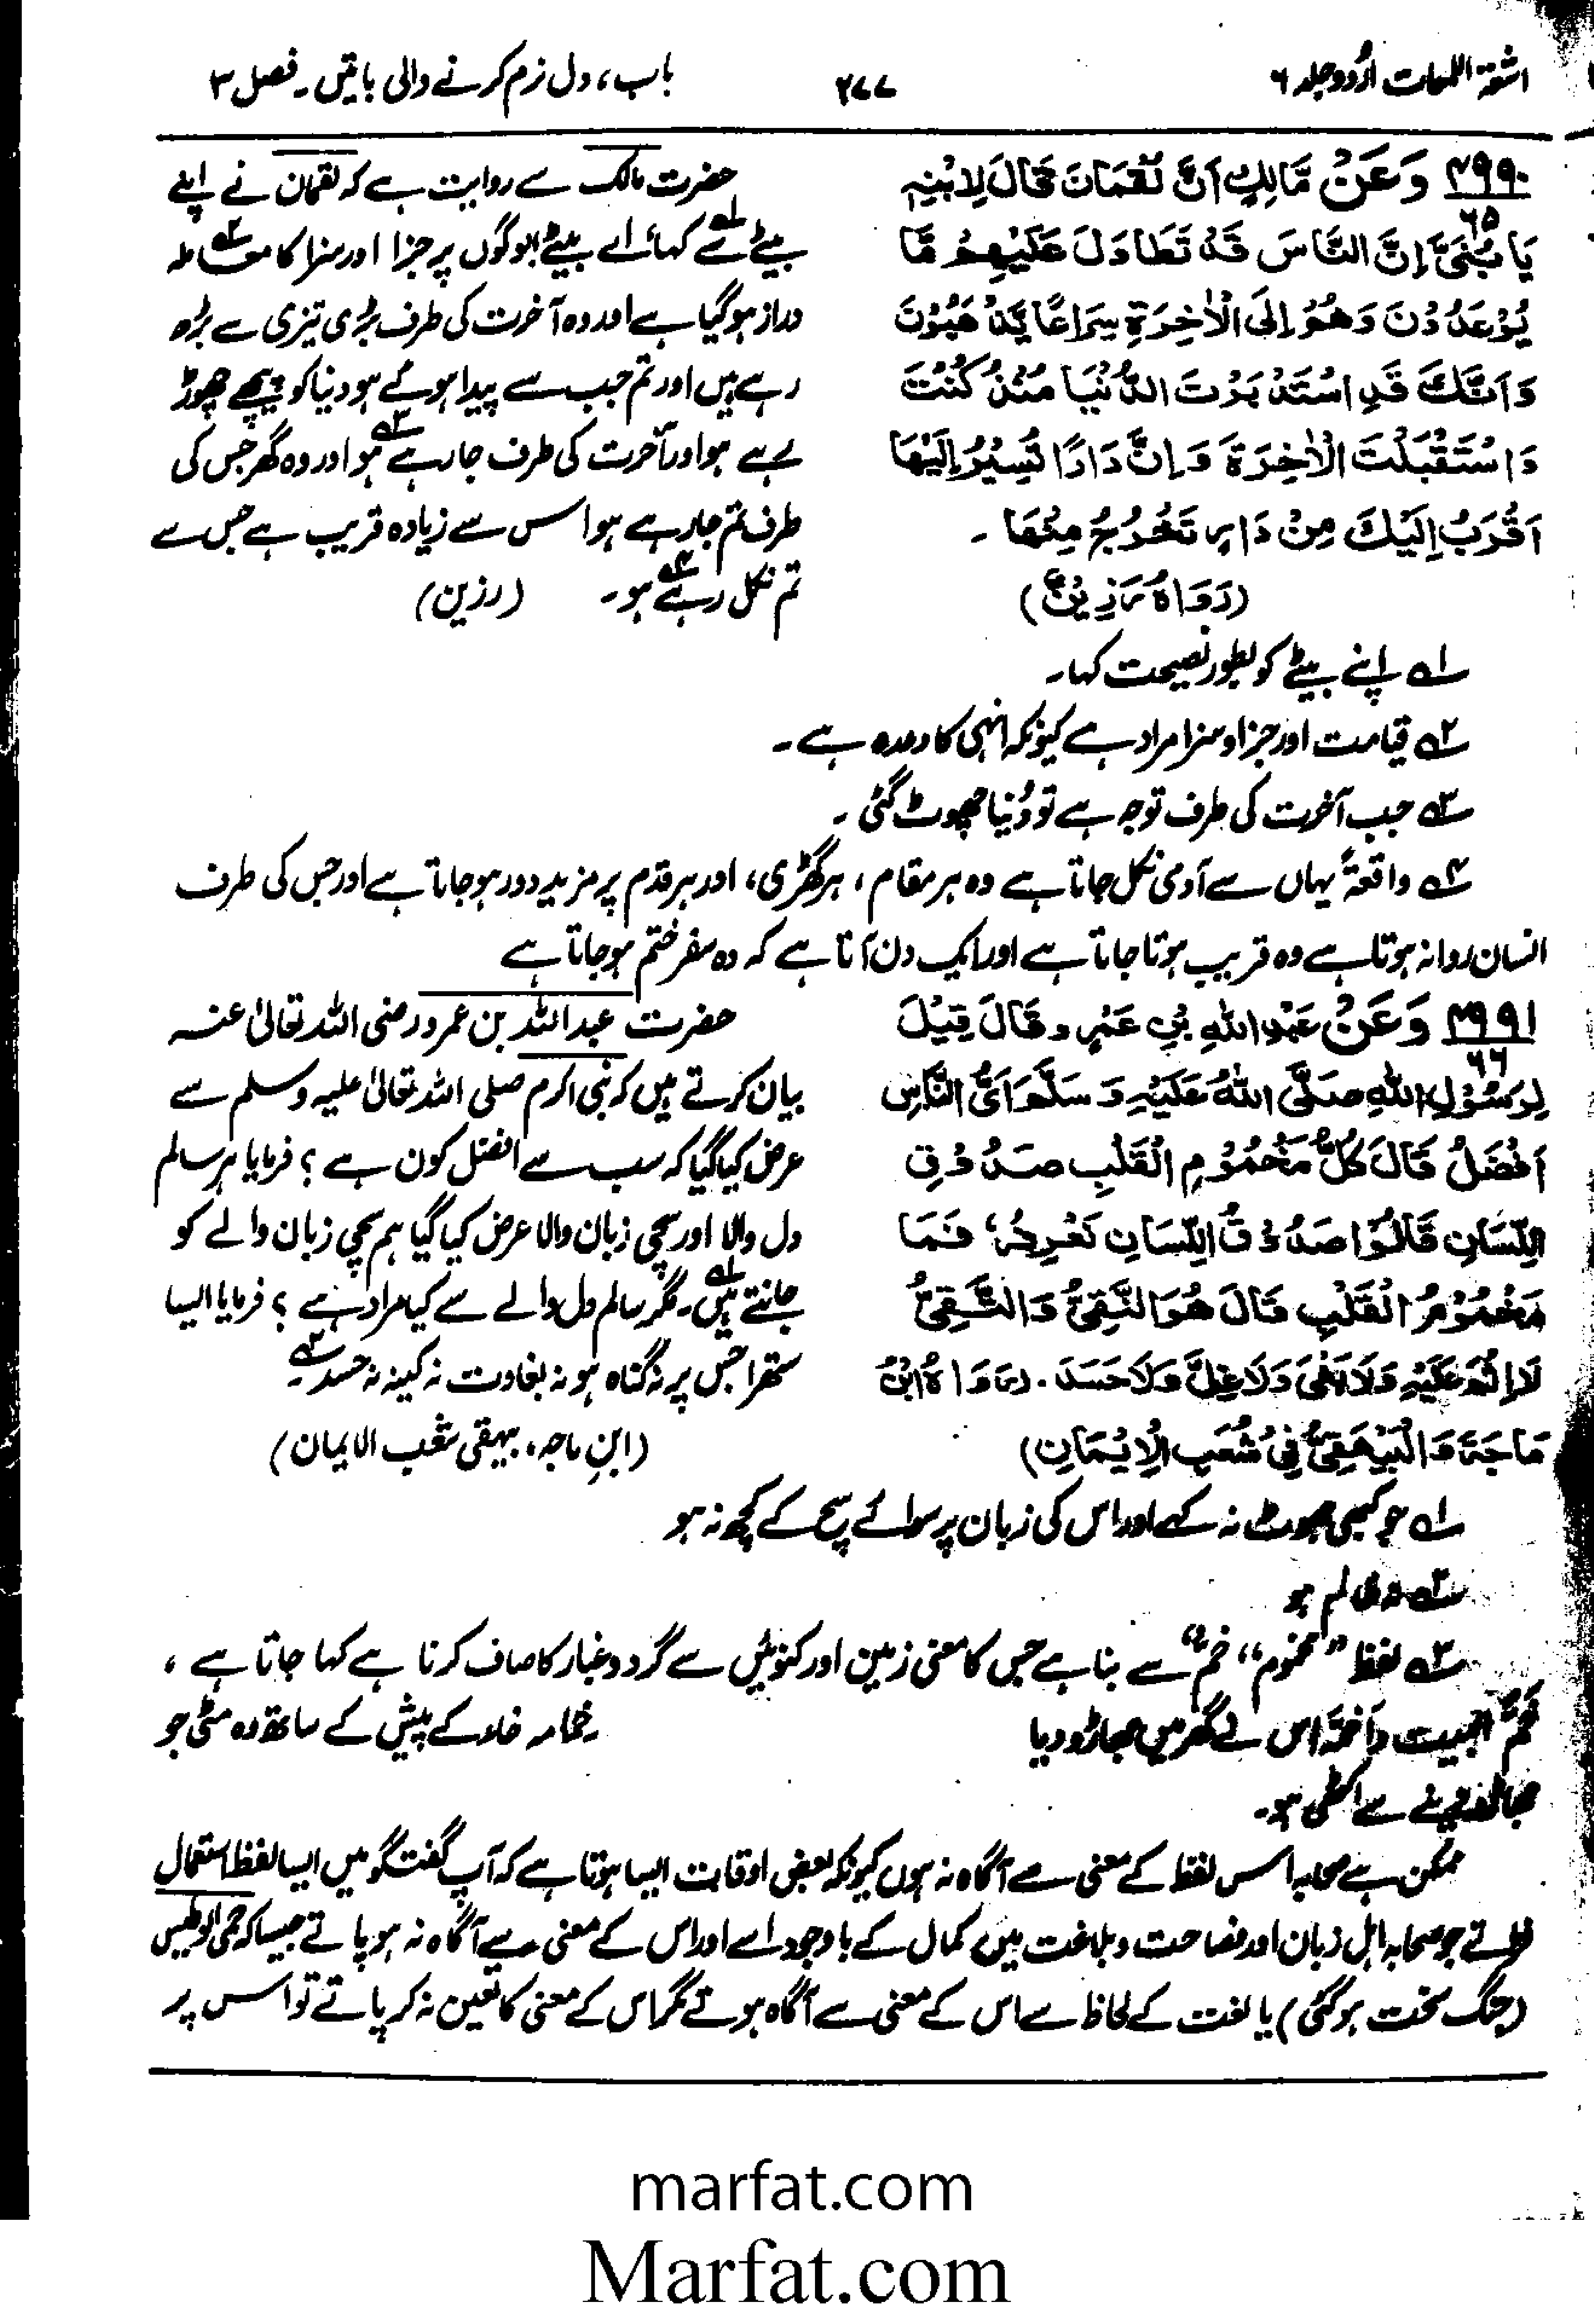 اشعۃ اللمعات اردو جلد ۶
۲۷۷
باب، دل نرم کرنے والی باتیں۔ فصل ۳
۴۹۹۰ وَعَنْ مَّالِكٍ اَنَّ لُقْمَانَ قَالَ لِابْنِهٖ
۶۵
يَا بُنَيَّ اِنَّ النَّاسَ قَدْ تَطَاوَلَ عَلَيْهِمْ مَّا
يُوْعَدُوْنَ وَهُمْ اِلَى الْاٰخِرَةِ سِرَاعًا يَّذْهَبُوْنَ
وَاَنَّكَ قَدِ اسْتَدْبَرْتَ الدُّنْيَا مُنْذُ كُنْتَ
وَاسْتَقْبَلْتَ الْاٰخِرَةَ وَاِنَّ دَارًا تَسِيْرُ اِلَيْهَا
اَقْرَبُ اِلَيْكَ مِنْ دَارٍ تَخْرُجُ مِنْهَا۔
(رَوَاهُ رَزِيْنٌ)
حضرت مالک سے روایت ہے کہ لقمان نے اپنے
بیٹے سے کہا۱ اے بیٹے! لوگوں پر جزا اور سزا کا معاملہ۲
دراز ہو گیا ہے اور وہ آخرت کی طرف بڑی تیزی سے بڑھ
رہے ہیں اور تم جب سے پیدا ہوئے ہو دنیا کو پیچھے چھوڑ
رہے ہو اور آخرت کی طرف جا رہے۳ ہو اور وہ گھر جس کی
طرف تم جا رہے ہو اس سے زیادہ قریب ہے جس سے
تم نکل رہے۴ ہو۔ (رزین)
۱ اپنے بیٹے کو بطور نصیحت کہا۔
۲ قیامت اور جزا و سزا مراد ہے کیونکہ انہی کا وعدہ ہے۔
۳ جب آخرت کی طرف توجہ ہے تو دُنیا چھوٹ گئی۔
۴ واقعۃً یہاں سے آدمی نکل جاتا ہے وہ ہر مقام، ہر گھڑی، اور ہر قدم پر مزید دور ہو جاتا ہے اور جس کی طرف
انسان روانہ ہوتا ہے وہ قریب ہوتا جاتا ہے اور ایک دن آتا ہے کہ وہ سفر ختم ہو جاتا ہے
۴۹۹۱ وَعَنْ عَبْدِ اللهِ بْنِ عَمْرٍو قَالَ قِيْلَ
۶۶
لِرَسُوْلِ اللهِ صَلَّى اللهُ عَلَيْهِ وَسَلَّمَ اَيُّ النَّاسِ
اَفْضَلُ قَالَ كُلُّ مَخْمُوْمِ الْقَلْبِ صَدُوْقِ
اللِّسَانِ قَالُوْا صَدُوْقُ اللِّسَانِ نَعْرِفُهٗ فَمَا
مَخْمُوْمُ الْقَلْبِ قَالَ هُوَ النَّقِيُّ وَالتَّقِيُّ
لَا اِثْمَ عَلَيْهِ وَلَا بَغْيَ وَلَا غِلَّ وَلَا حَسَدَ۔ (رَوَاهُ ابْنُ
مَاجَةَ وَالْبَيْهَقِيُّ فِيْ شُعَبِ الْاِيْمَانِ)
حضرت عبداللہ بن عمرو رضی اللہ تعالیٰ عنہ
بیان کرتے ہیں کہ نبی اکرم صلی اللہ تعالیٰ علیہ وسلم سے
عرض کیا گیا کہ سب سے افضل کون ہے؟ فرمایا ہر سالم
دل والا اور سچی زبان والا عرض کیا گیا ہم سچی زبان والے کو
جانتے ہیں۱۔ مگر سالم دل والے سے کیا مراد ہے؟ فرمایا ایسا
ستھرا جس پر نہ گناہ ہو نہ بغاوت نہ کینہ نہ حسد۲۔
(ابنِ ماجہ، بیہقی شعب الایمان)
۱ جو کبھی جھوٹ نہ کہے اور اس کی زبان پر سوائے سچ کے کچھ نہ ہو
۳ لفظ "مخموم" "خم" سے بنا ہے جس کا معنی زمین اور کنوئیں سے گرد و غبار کا صاف کرنا ہے کہا جاتا ہے،
خَمَّ البیت واختمہ اس نے گھر میں جھاڑو دیا خمامہ خاء کے پیش کے ساتھ وہ مٹی جو
جھاڑو دینے سے اکٹھی ہو۔
ممکن ہے صحابہ اس لفظ کے معنی سے آگاہ نہ ہوں کیونکہ بعض اوقات ایسا ہوتا ہے کہ آپ گفتگو میں ایسا لفظ استعمال
فرماتے جو صحابہ اہل زبان اور فصاحت و بلاغت میں کمال کے باوجود اسے اور اس کے معنی سے آگاہ نہ ہو پاتے جیسا کہ حمی الوطیس
(جنگ سخت ہو گئی) یا لغت کے لحاظ سے اس کے معنی سے آگاہ ہوتے مگر اس کے معنی کا تعین نہ کر پاتے تو اس پر
marfat.com
Marfat.com